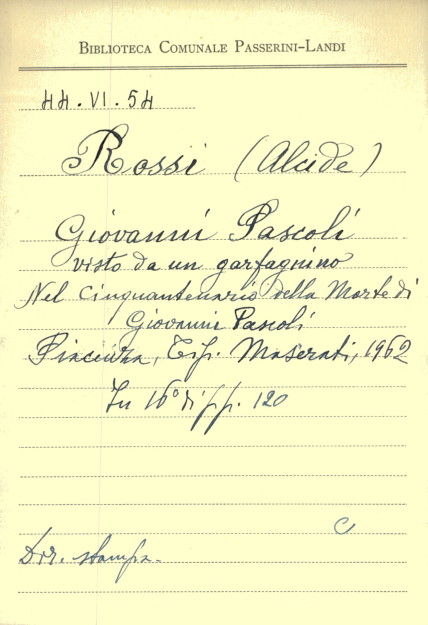 BIBLIOTECA COMUNALE PASSERINI-LANDI
44.VI.54
Rossi (Alcide)
Giovanni Pascoli
visto da un garfagnino
Nel Cinquantenario della Morte di
Giovanni Pascoli
Piacenza, Tip. Maserati, 1962
In 16° di pp. 120
C
Dir. stampa.